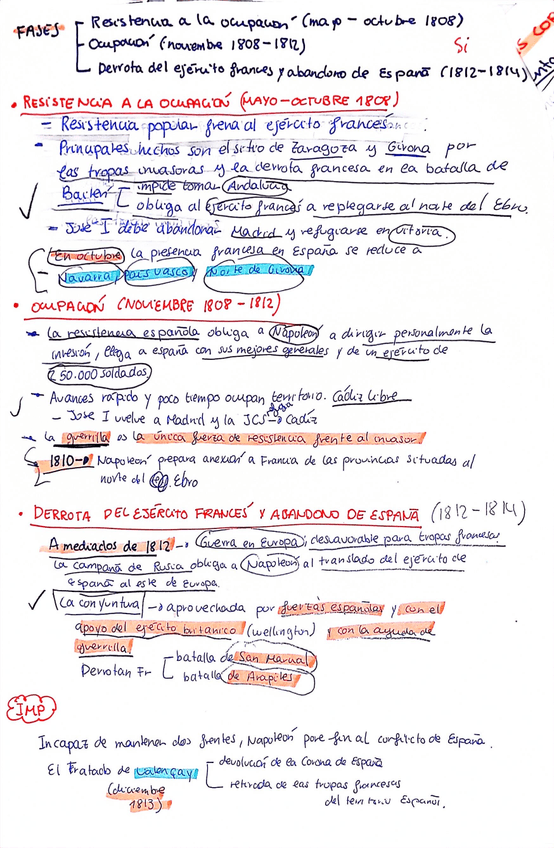 FASES
- Resistencia a la ocupación (mayo - octubre 1808)
- Ocupación (noviembre 1808 - 1812)
- Derrota del ejército frances y abandono de España (1812-1814)
Si
• RESISTENCIA A LA OCUPACIÓN (MAYO-OCTUBRE 1808)
- Resistencia popular frena al ejército francés
- Principales hechos son el sitio de Zaragoza y Girona por
las tropas invasoras y la derrota francesa en la batalla de
Bailen
impide tomar Andalucia
obliga al ejército francés a replegarse al norte del Ebro.
- José I debe abandonar Madrid y refugiarse en Vitoria.
- En octubre la presencia francesa en España se reduce a
Navarra, País vasco, Norte de Girona
• OCUPACIÓN (NOVIEMBRE 1808 - 1812)
- La resistencia española obliga a Napoleón a dirigir personalmente la
invasión, llega a españa con sus mejores generales y de un ejército de
250.000 soldados
- Avances rápido y poco tiempo ocupan territorio. Cádiz libre
- José I vuelve a Madrid y la JCS → Cadiz
- la guerrilla es la única fuerza de resistencia frente al invasor
1810 → Napoleón prepara anexión a Francia de las provincias situadas al
norte del Ebro
• DERROTA DEL EJÉRCITO FRANCÉS Y ABANDONO DE ESPAÑA (1812-1814)
A mediados de 1812 → Guerra en Europa, desfavorable para tropas francesas
La campaña de Rusia obliga a Napoleón al translado del ejército de
españa al este de Europa.
La conyuntura → aprovechada por fuerzas españolas y con el
apoyo del ejército britanico (wellington) y con la ayuda de
guerrilla.
Derrotan Fr
batalla de San Marcial
batalla de Arapiles
IMP
Incapaz de mantener dos frentes, Napoleón pone fin al conflicto de España.
El Tratado de Valençay
devolución de la Corona de España
(diciembre
1813)
retirada de las tropas francesas
del territorio Español.